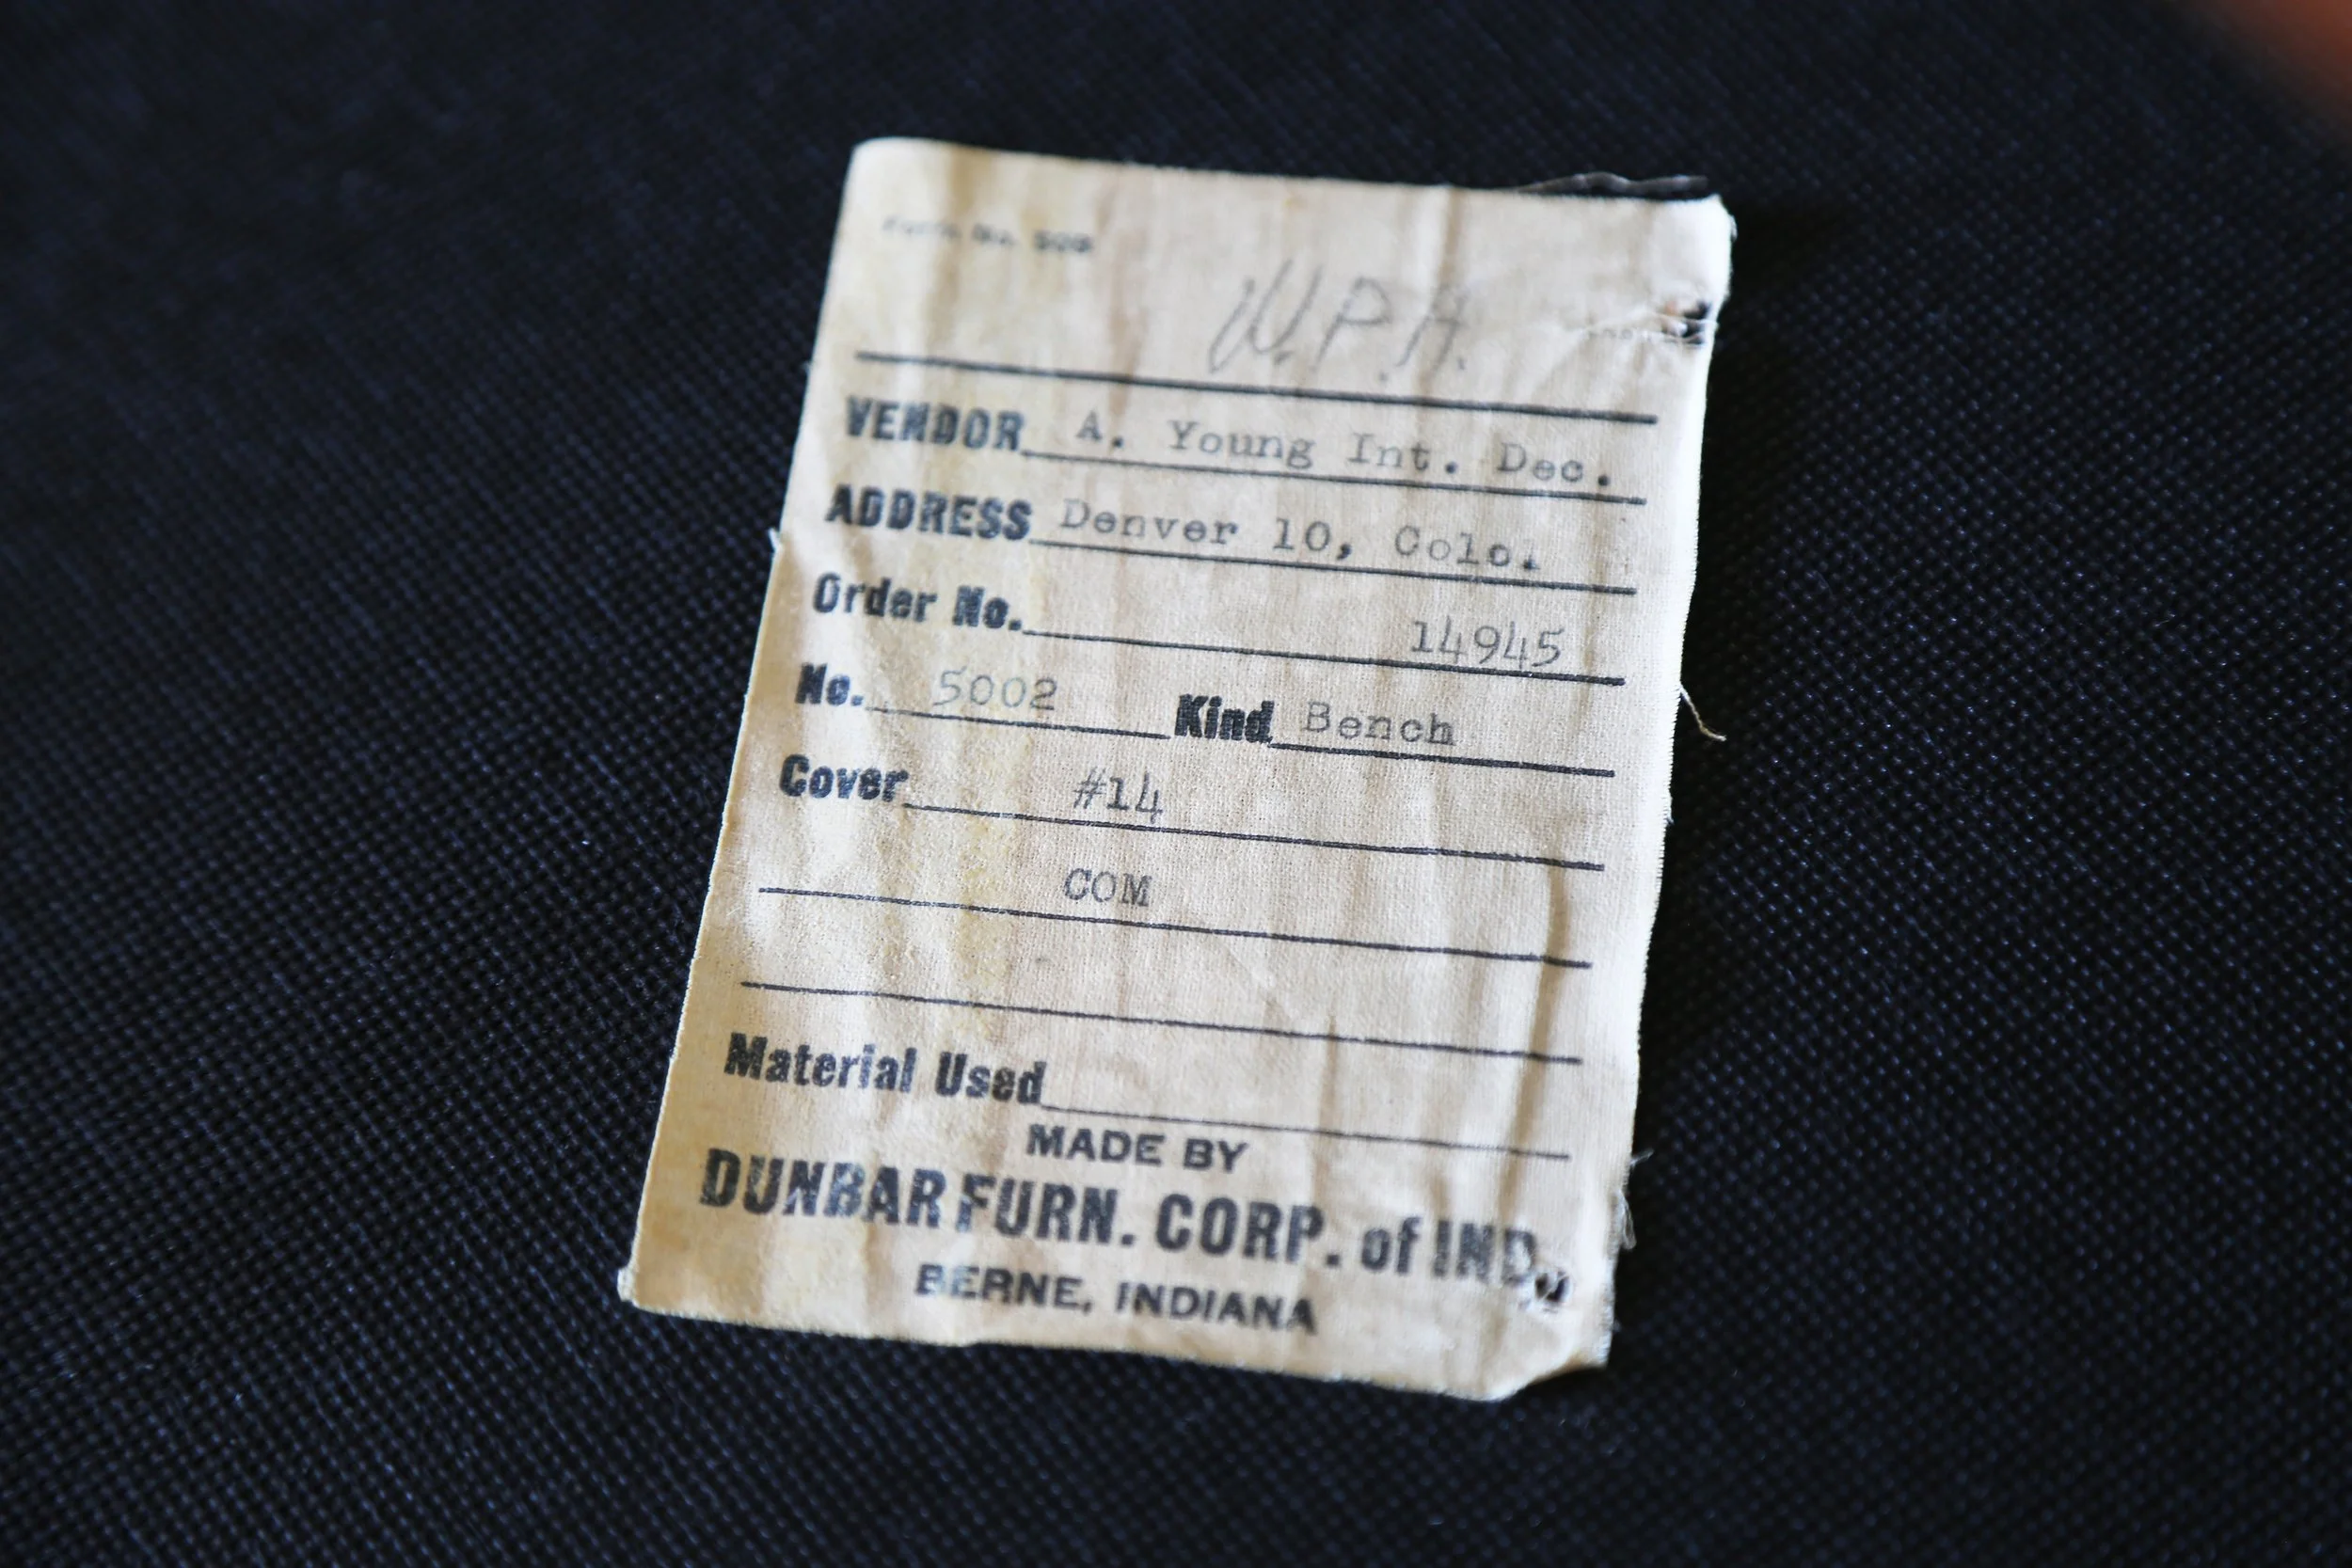 Form No. 50
W.P.H.
VENDOR A. Young Int. Dec.
ADDRESS Denver 10, Colo.
Order No. 14945
No. 5002 Kind Bench
Cover #14
COM
Material Used
MADE BY
DUNBAR FURN. CORP. of IND.
BERNE, INDIANA